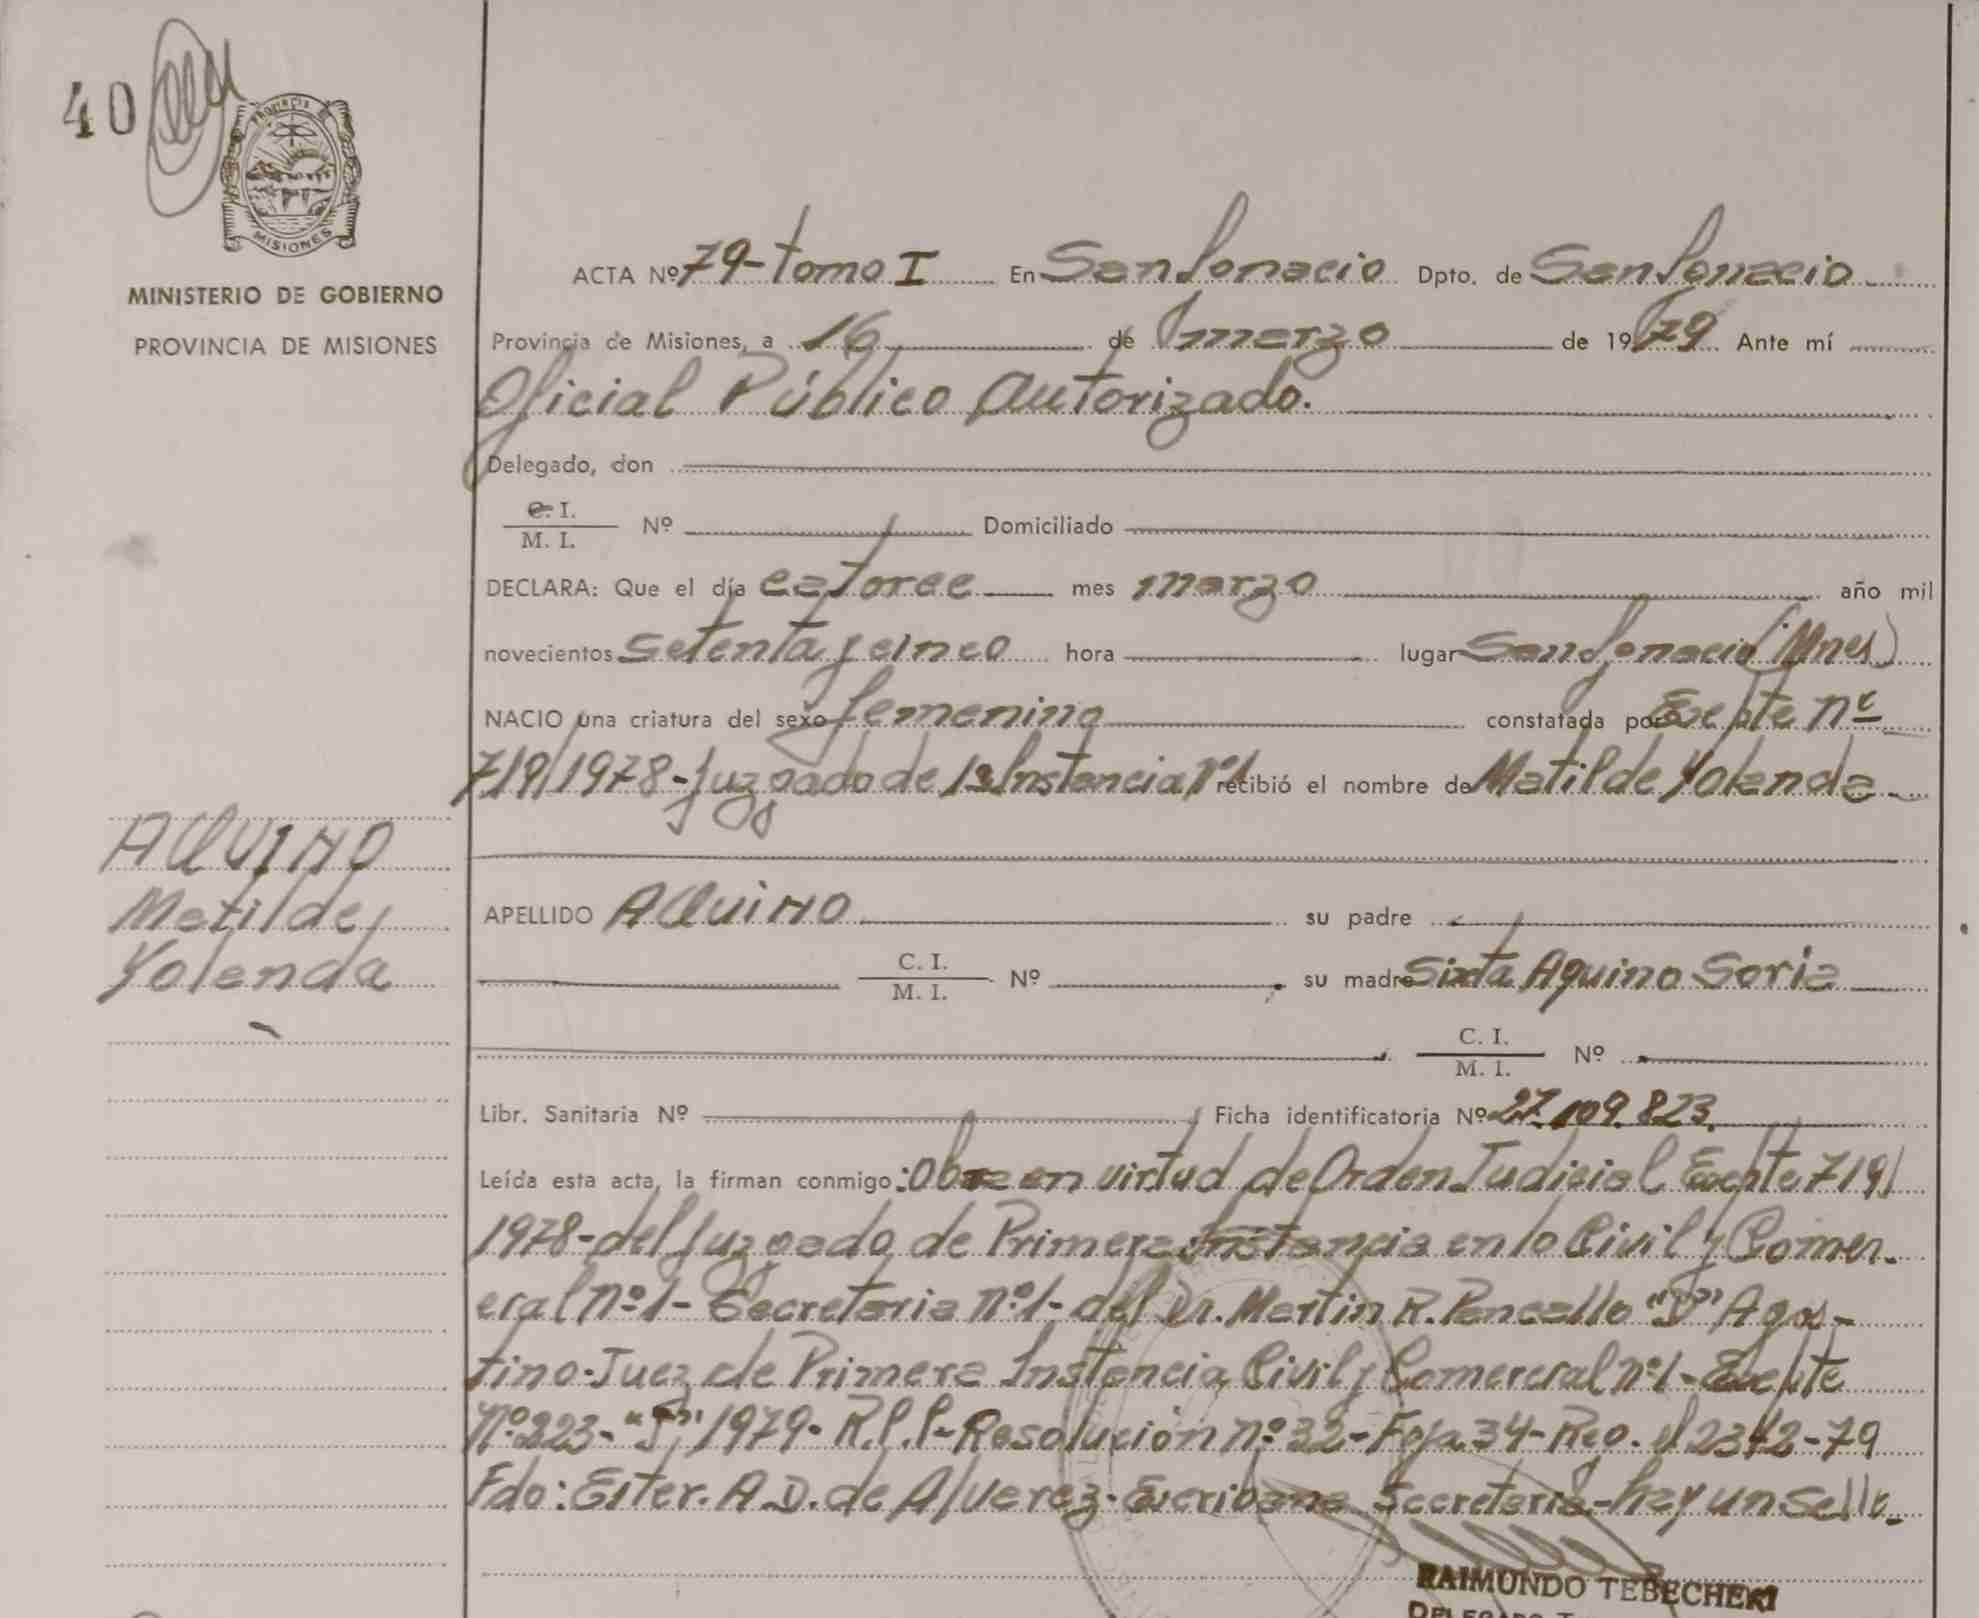 40
PROVINCIA
MISIONES
MINISTERIO DE GOBIERNO
PROVINCIA DE MISIONES
ACTA Nº 79-tomo I En San Ignacio Dpto. de San Ignacio
Provincia de Misiones, a 16 de marzo de 1979 Ante mí
Oficial Público Autorizado.
Delegado, don
C. I.
M. I. Nº Domiciliado
DECLARA: Que el día catorce mes marzo año mil
novecientos setenta y cinco hora lugar San Ignacio (Mnes)
NACIO una criatura del sexo femenino constatada por Expte nº
719/1978-Juzgado de 1ª Instancia nº1 recibió el nombre de Matilde Yolanda
AQUINO
Matilde
Yolanda
APELLIDO AQUINO su padre
C. I.
M. I. Nº su madre Sixta Aquino Soria
C. I.
M. I. Nº
Libr. Sanitaria Nº Ficha identificatoria Nº 27.109.823.
Leída esta acta, la firman conmigo: Obra en virtud de Orden Judicial Expte 719/
1978-del Juzgado de Primera Instancia en lo Civil y Comer-
cial nº1- Secretaria nº1- del Dr. Martin R. Pancallo "D" Agos-
tino-Juez de Primera Instancia Civil y Comercial nº1- Expte
Nº223- 1979- R.P.P- Resolución nº32-Foja 34-Reg. 2342-79
Fdo: Ester. A.D. de Alvarez- Escribana Secretaria-hay un sello-
RAIMUNDO TEBECHERI